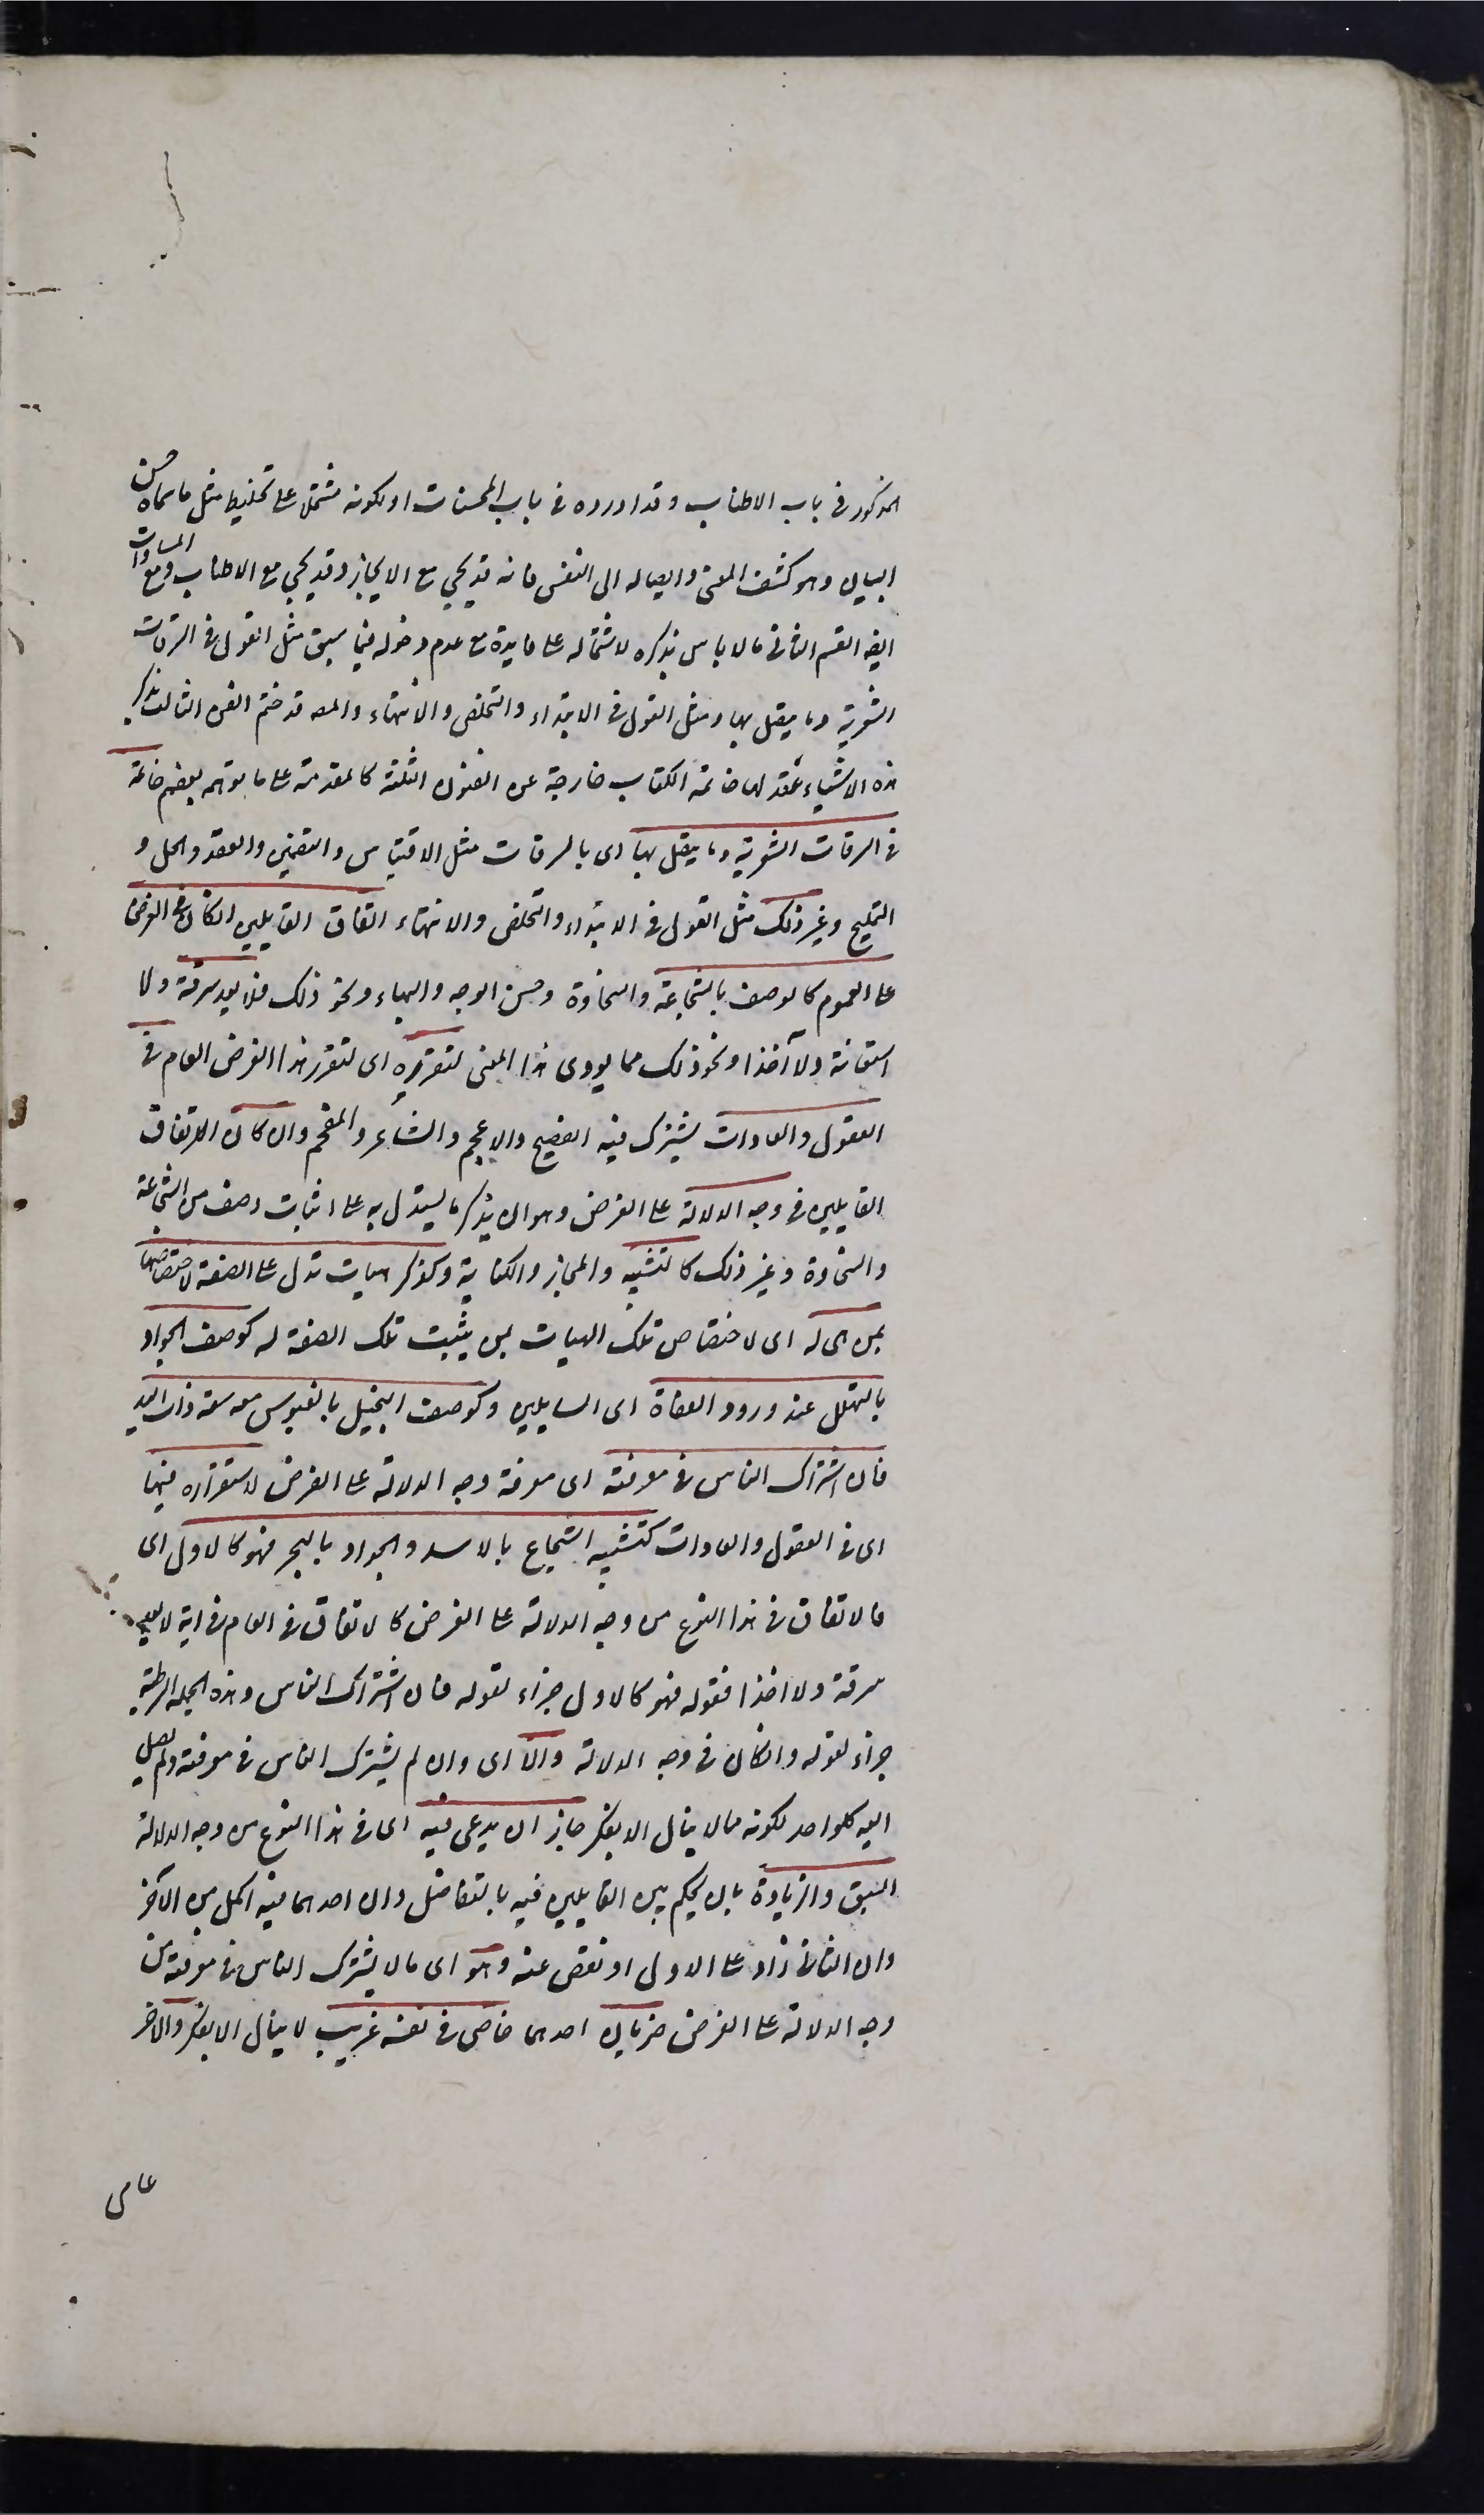 المذكور فى باب الاطناب وقد اورده فى باب المحسنات او لكونه مشتملا على تخليط مثل ما سماه حسن
البيان وهو كشف المعنى وايصاله الى النفس فانه قد يجي مع الايجاز وقد يجي مع الاطناب ومع المساوات
ايضا القسم الثانى ما لا باس بذكره لاشتماله على فايدة مع عدم دخوله فيما سبق مثل القول فى السرقات
الشعرية وما يتصل بها ومثل القول فى الابتداء والتخلص والانتهاء والمص قد ختم الفن الثالث بذكر
هذه الاشياء وعقد لها خاتمة الكتاب خارجة عن الفنون الثلثة كالمقدمة على ما توهم بعضهم خاتمة
فى السرقات الشعرية وما يتصل بها اى بالسرقات مثل الاقتباس والتضمين والعقد والحل و
التلميح وغير ذلك مثل القول فى الابتداء والتخلص والانتهاء اتفاق القايلين ان كان فى الغرض
على العموم كالوصف بالشجاعة والسخاوة وحسن الوجه والبهاء ونحو ذلك فلا يعد سرقة ولا
استعانة ولا اخذا ونحو ذلك مما يودى هذا المعنى لتقرره اى لتقرر هذا الغرض العام فى
العقول والعادات يشترك فيه الفصيح والاعجم والشاعر والمفحم وان كان الاتفاق
القايلين فى وجه الدلالة على الغرض وهو ان يذكر ما يستدل به على اثبات وصف من الشجاعة
والسخاوة وغير ذلك كالتشبيه والمجاز والكناية وكذكر هيات تدل على الصفة لاختصاصها
بمن هى له اى لاختصاص تلك الهيات بمن يثبت تلك الصفة له كوصف الجواد
بالتهلل عند ورود العفاة اى السايلين وكوصف البخيل بالعبوس مع سعة ذات اليد
فان اشترك الناس فى معرفته اى معرفة وجه الدلالة على الغرض لاستقراره فيهما
اى فى العقول والعادات كتشبيه الشجاع بالاسد والجواد بالبحر فهو كالاول اى
فالاتفاق فى هذا النوع من وجه الدلالة على الغرض كالاتفاق فى العام فى انه لا يعد
سرقة ولا اخذا فقوله فهو كالاول جزاء لقوله فان اشترك الناس وهذه الجملة الشرطية
جزاء لقوله وان كان فى وجه الدلالة والا اى وان لم يشترك الناس فى معرفته ولم يصل
اليه كل واحد لكونه مما لا ينال الا بفكر جاز ان يدعى فيه اى فى هذا النوع من وجه الدلالة
السبق والزيادة بان يحكم بين القايلين فيه بالتفاضل وان احدهما فيه اكمل من الآخر
وان الثانى زاد على الاول او نقص عنه وهو اى ما لا يشترك الناس فى معرفته من
وجه الدلالة على الغرض ضربان احدهما خاصى فى نفسه غريب لا ينال الا بفكر والآخر
عامى